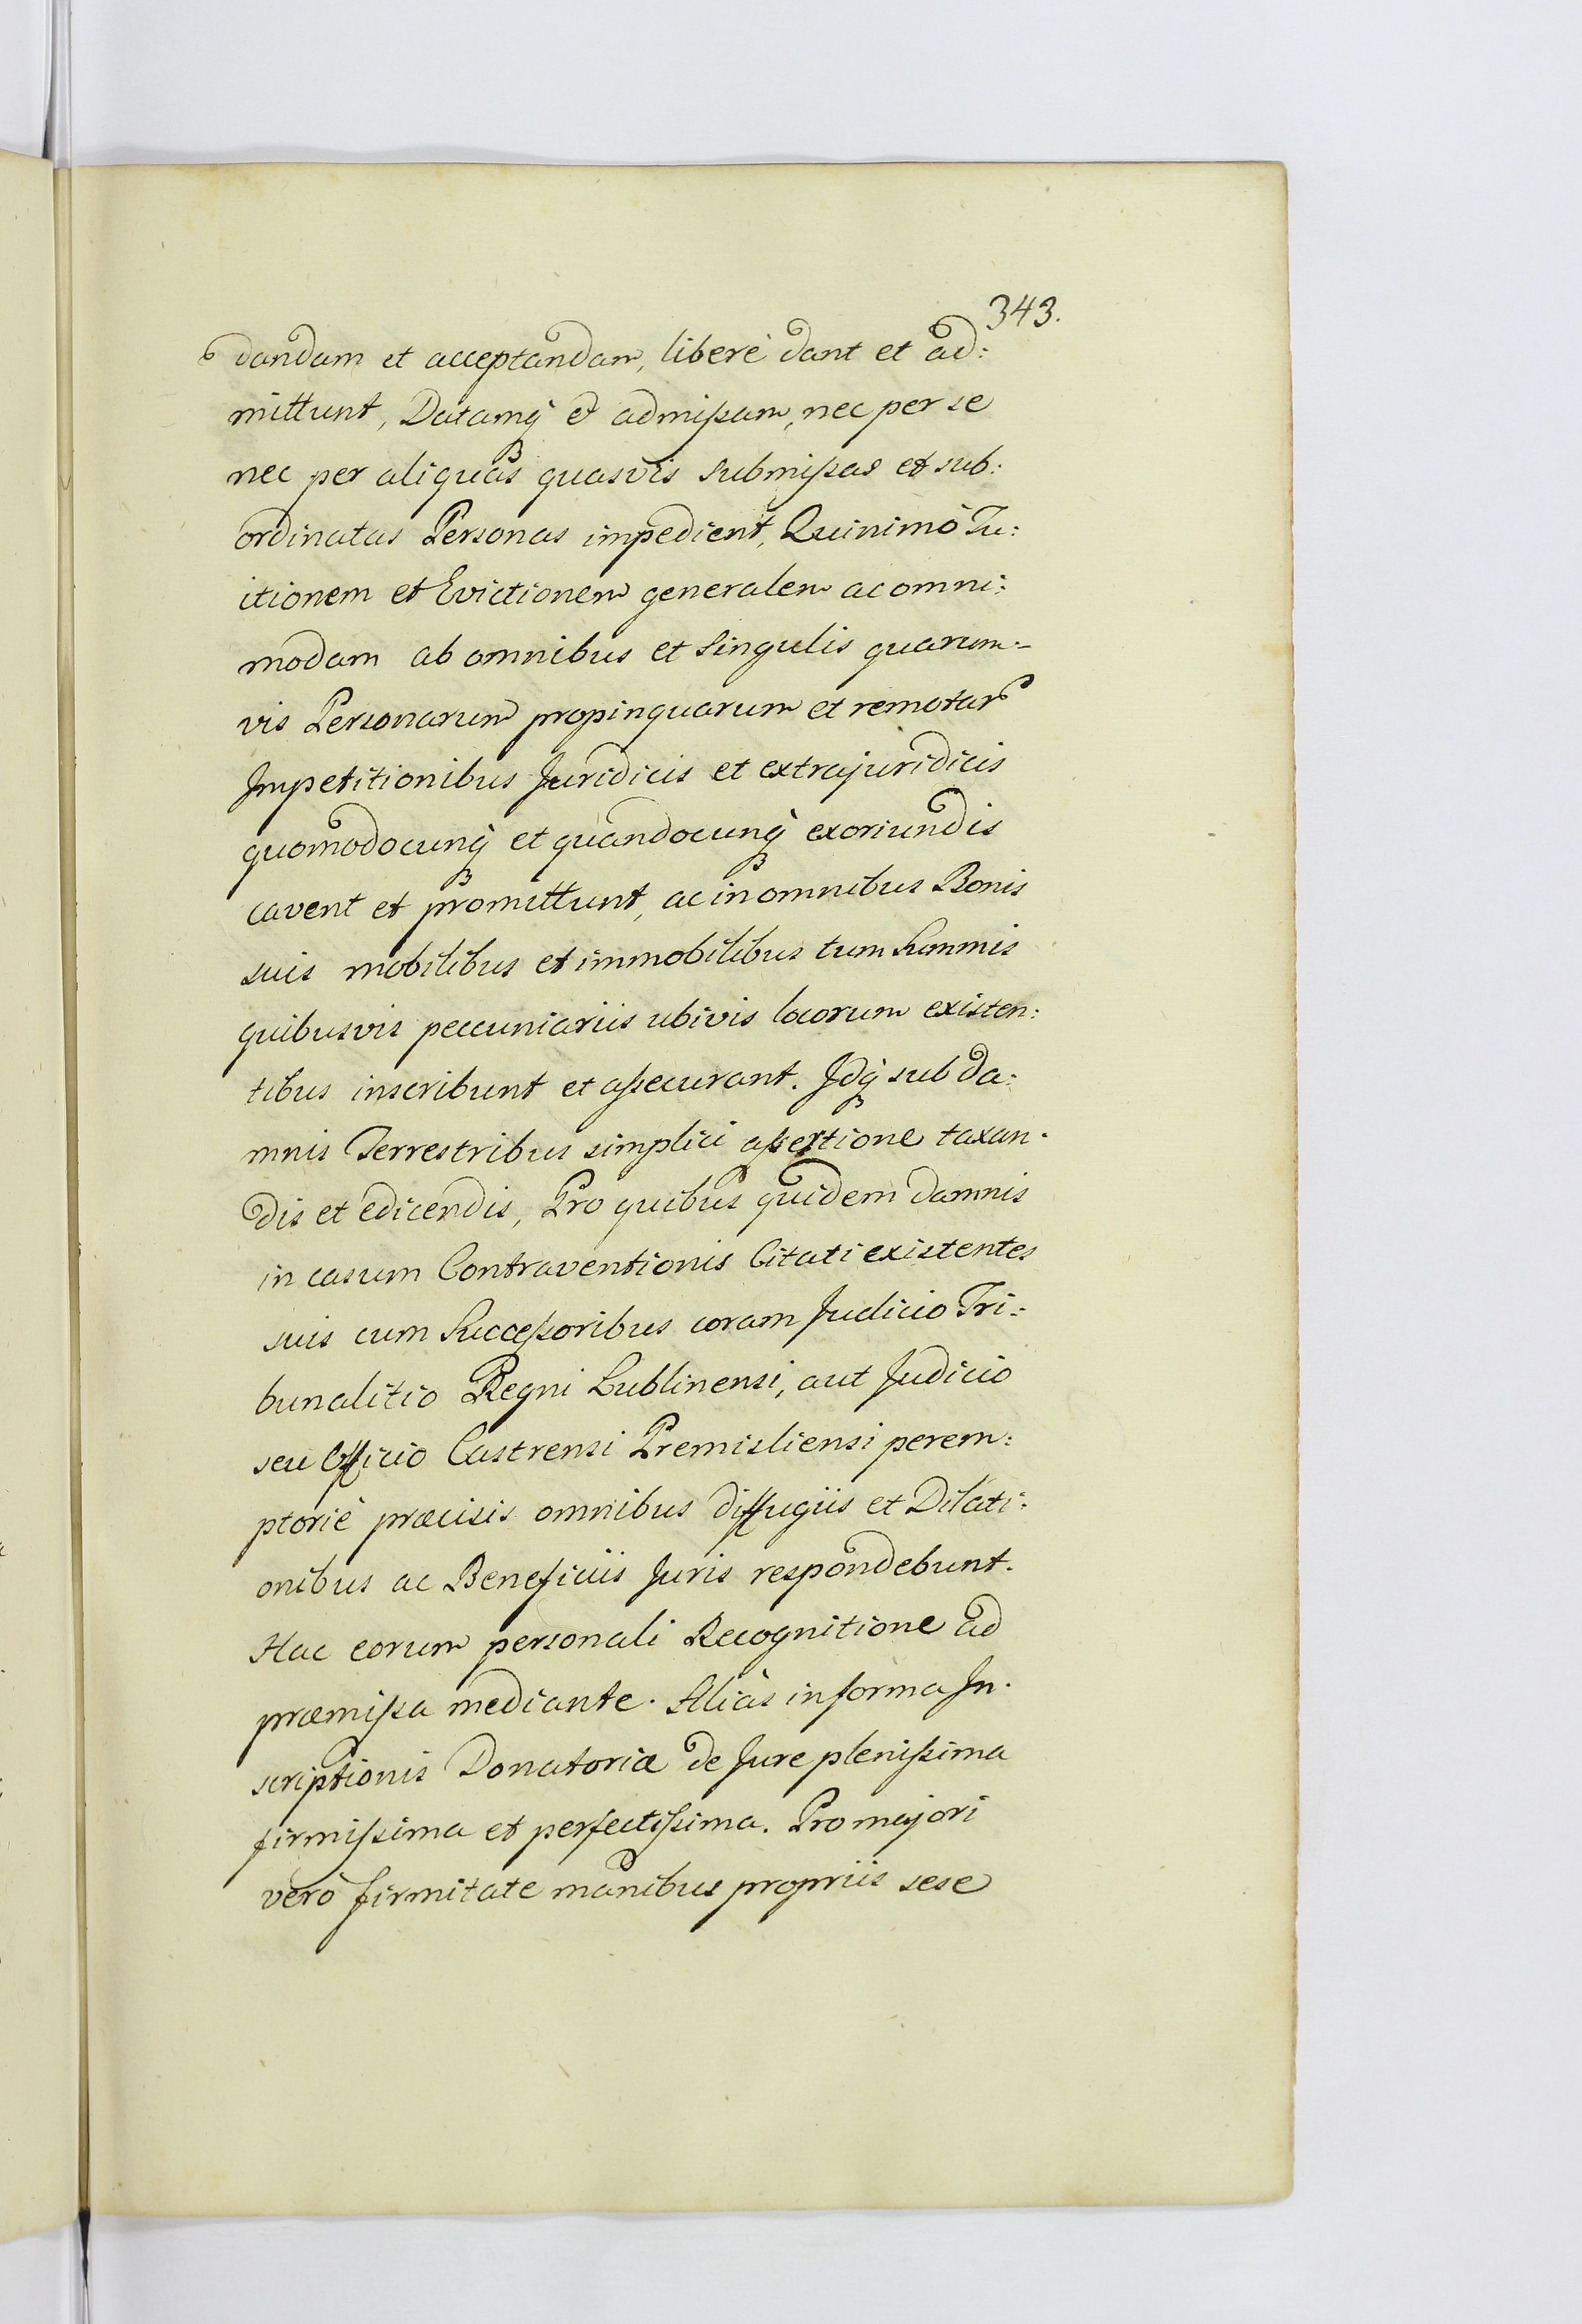 343.
dandam et acceptandam, liberè dant et ad:
mittunt, Datamq3 et admißam, nec per se
nec per aliquas quasvis submißas et sub:
ordinatas Personas impedient, Quinimò Tu:
itionem et Evictionem generalem ac omni:
modam ab omnibus et singulis quarum=
vis Personarum propinquarum et remotar
Impetitionibus Juridicis et extrajuridicis
quomodocunq3 et quandocunq3 exoriundis
cavent et promittunt, ac in omnibus Bonis
suis mobilibus et immobilibus tum Summis
quibusvis peccuniariis ubivis locorum existen:
tibus inscribunt et aßecurant. Jdq3 sub da:
mnis Terrestribus simplici aßertione taxan:
dis et edicendis, Pro quibus quidem damnis
in casum Contraventionis Citati existentes
suis cum Succeßoribus coram Judicio Tri:
bunalitio Regni Lublinensi, aut Judicio
seu Officio Castrensi Premisliensi perem:
ptoriè præcisis omnibus diffugiis et Dilati:
onibus ac Beneficiis Juris respondebunt.
Hac eorum personali Recognitione ad
præmißa mediante. Aliàs in forma In:
scriptionis Donatoriæ de Jure plenißima
firmißima et perfectißima. Pro majori
verò firmitate manibus propriis sese